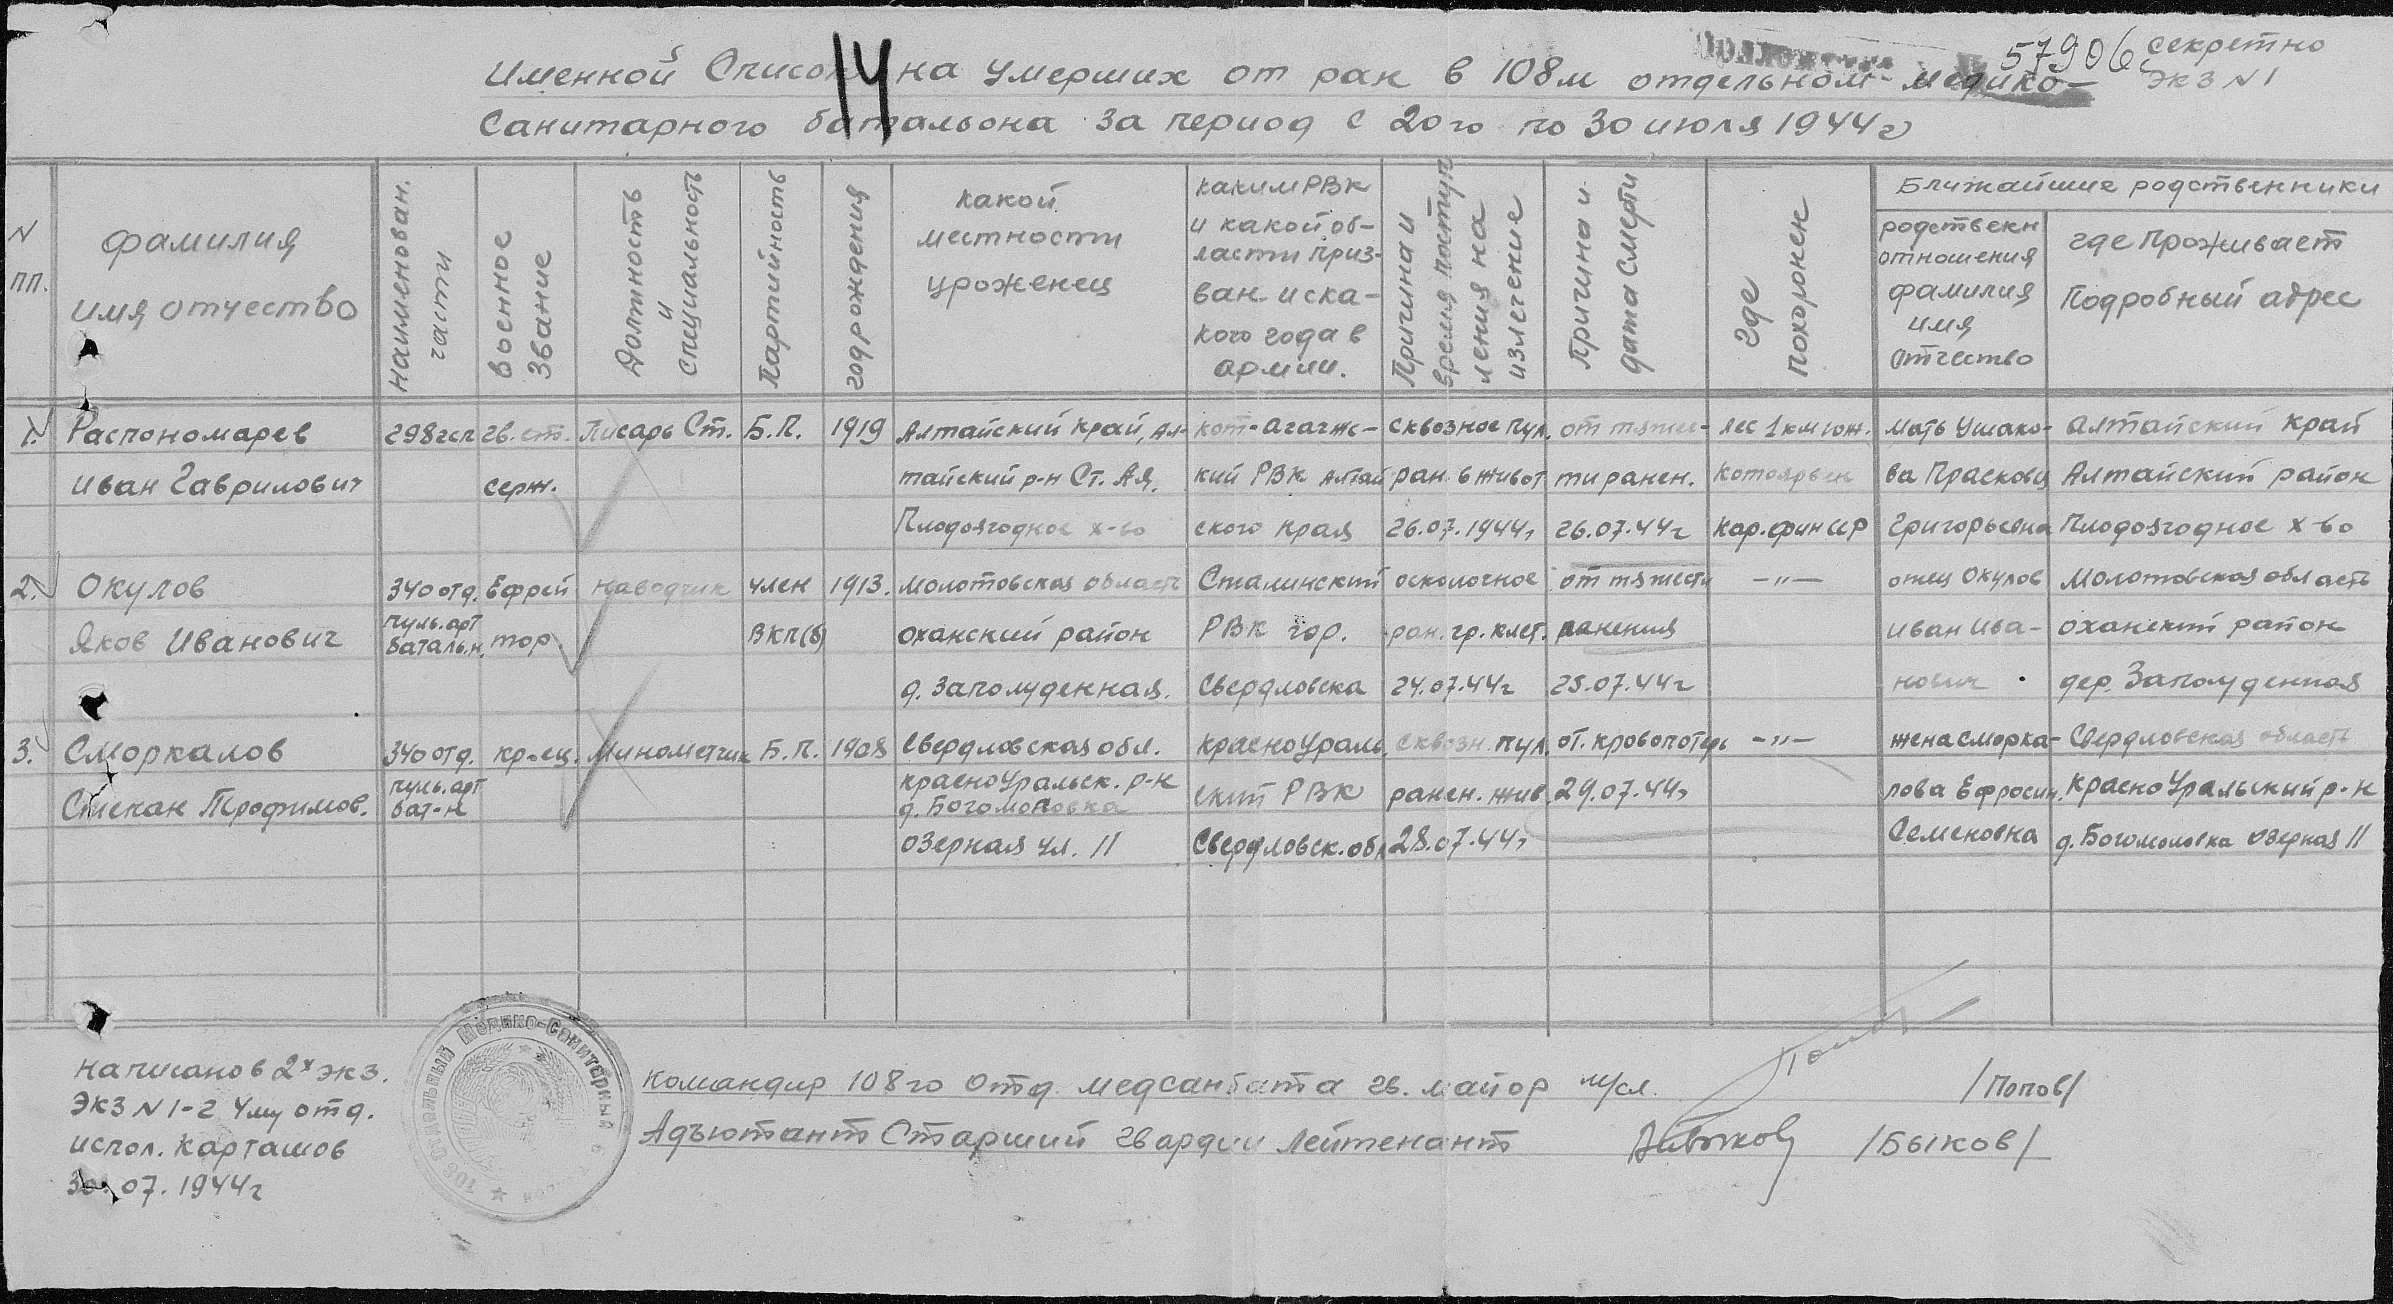 секретно
57906с
экз N 1
14
Именной Список на умерших от ран в 108м отдельном медико-
Санитарного батальона за период с 20го по 30 июля 1944г
N пп.
фамилия имя отчество
наименован. части
военное звание
Должность и специальность
Партийность
год рождения
какой местности уроженец
каким РВК и какой области призван и с какого года в армии.
Причина и время поступления на излечение
Причина и дата смерти
где похоронен
Ближайшие родственники
родственн отношения фамилия имя отчество
где проживает Подробный адрес
1. Распономарев 298гсп гв. ст. Писарь Ст. Б.П. 1919 Алтайский край, Ал- сквозное пул. от тяжес- лес 1 км юж. мать Ушако- Алтайский край
Иван Гаврилович серж. тайский р-н Ст. Ая, кий РВК Алтай ран. в живот ти ранен. ва Прасковя Алтайский район
Плодоягодное х-во ского края 26.07.1944г 26.07.44г Кар.фин ССР Григорьевна Плодоягодное х-во
2. Окулов 340 отд. Ефрей наводчик член 1913. Молотовская область Сталинский осколочное от тяжести -"- отец Окулов Молотовская область
Яков Иванович пуль.арт батальн. тор. ВКП(б) Оханский район РВК гор. ран. гр. клет. ранения Иван Ива- Оханский район
д. Заполуденная. Свердловска 24.07.44г 25.07.44г нович дер. Заполуденная
3. Сморкалов 340 отд. кр-ец. Минометчик Б.П. 1908 Свердловская обл. Красноураль сквозн. пул. от. кровопотерь -"- жена Сморка- Свердловская область
Степан Трофимов. пуль.арт бат-н Красноуральск. р-н д. Богомоловка ский РВК ранен. жив. 29.07.44г лова Ефросин. КрасноУральский р-н
Озерная ул. 11 Свердловск.обл 28.07.44г Семеновна д. Богомоловка Озерная 11
Написано в 2х экз.
Экз N 1-2 4му отд.
испол. Карташов
30.07.1944г
108 Отдельный Медико-Санитарный
Командир 108го Отд. медсанбата гв. майор м/сл. /Попов/
Адъютант Старший гвардии лейтенант /Быков/